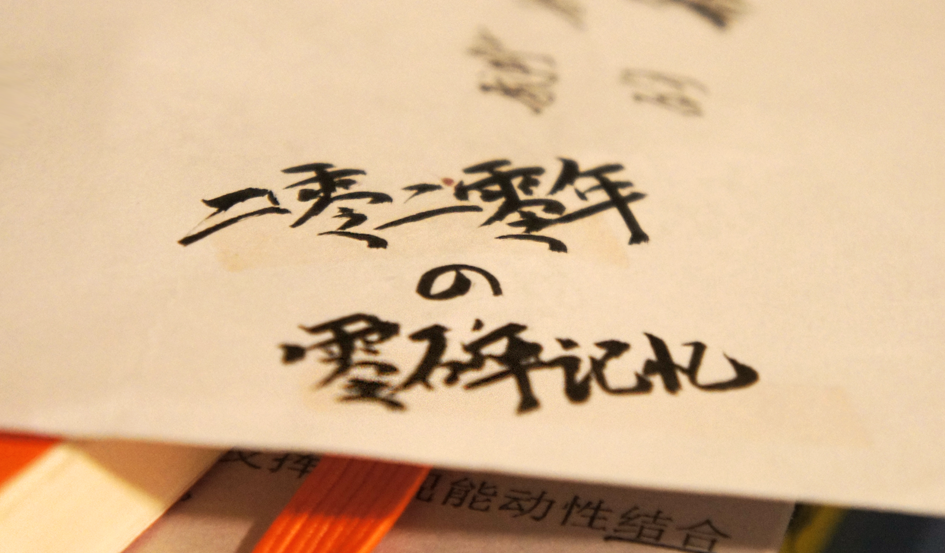 的
二零二零年
の
零碎记忆
发挥
能动性结合